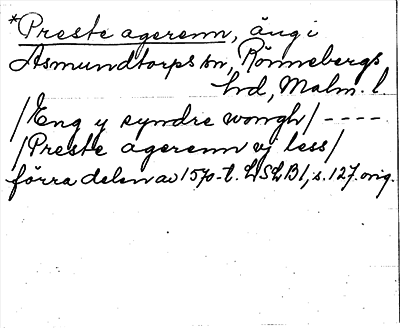 *Preste agerenn, äng i
Asmundtorps sn, Rönnebergs
hd, Malm. l.
/Eng y syndre wongh/ ----
/Preste agerenn vj less/
förra delen av 1570-t. LSLB1, s. 127. orig.